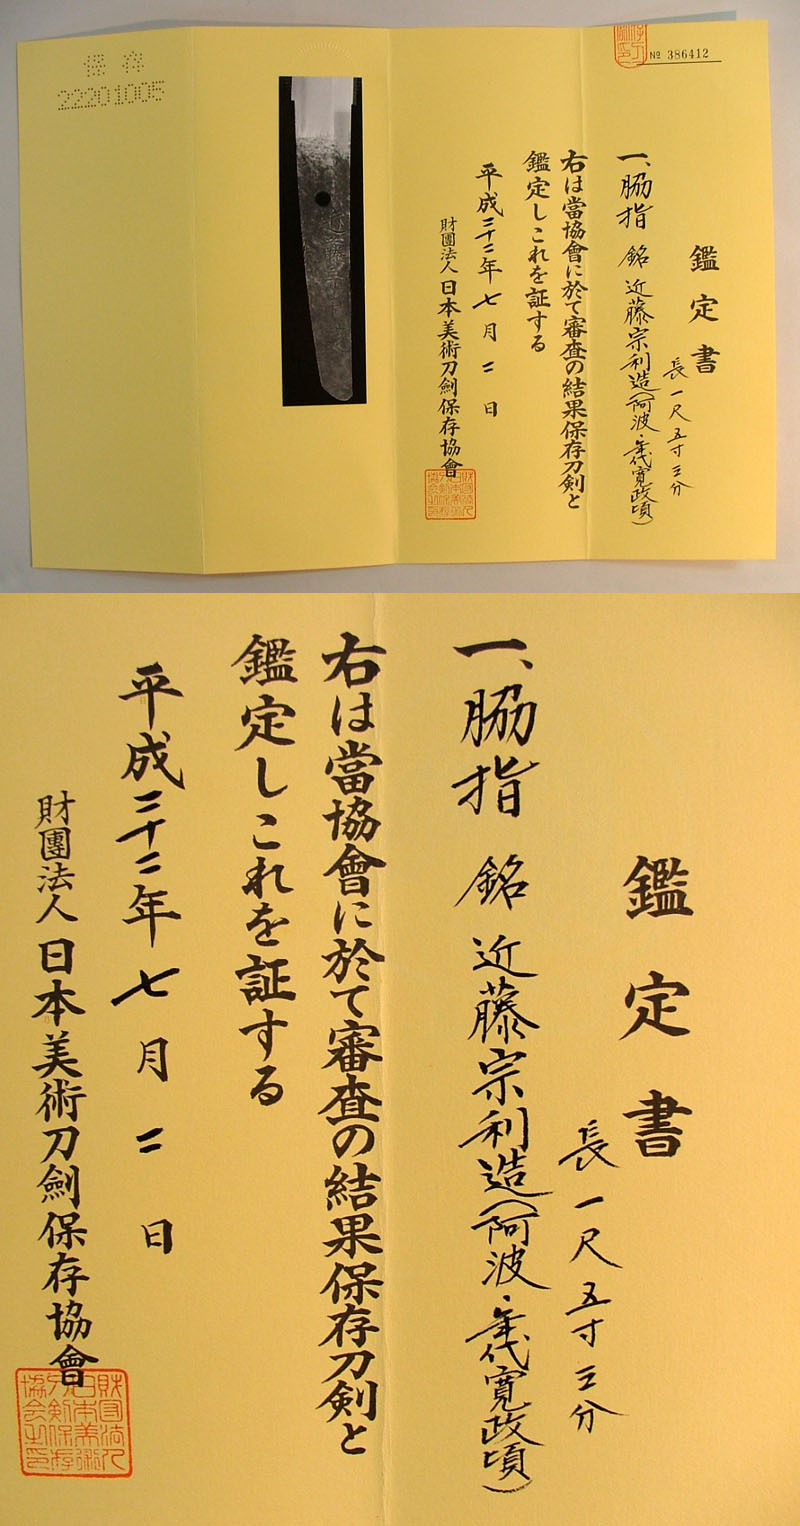 保存
22201005
№ 386412
鑑定書
長一尺五寸三分
一、脇指 銘 近藤宗利造(阿波・年代寛政頃)
右は當協會に於て審査の結果保存刀剣と
鑑定しこれを証する
平成二十二年七月二日
財團法人日本美術刀劍保存協會
鑑定書
長一尺五寸三分
一、脇指 銘 近藤宗利造(阿波・年代寛政頃)
右は當協會に於て審査の結果保存刀剣と
鑑定しこれを証する
平成二十二年七月二日
財團法人日本美術刀劍保存協會